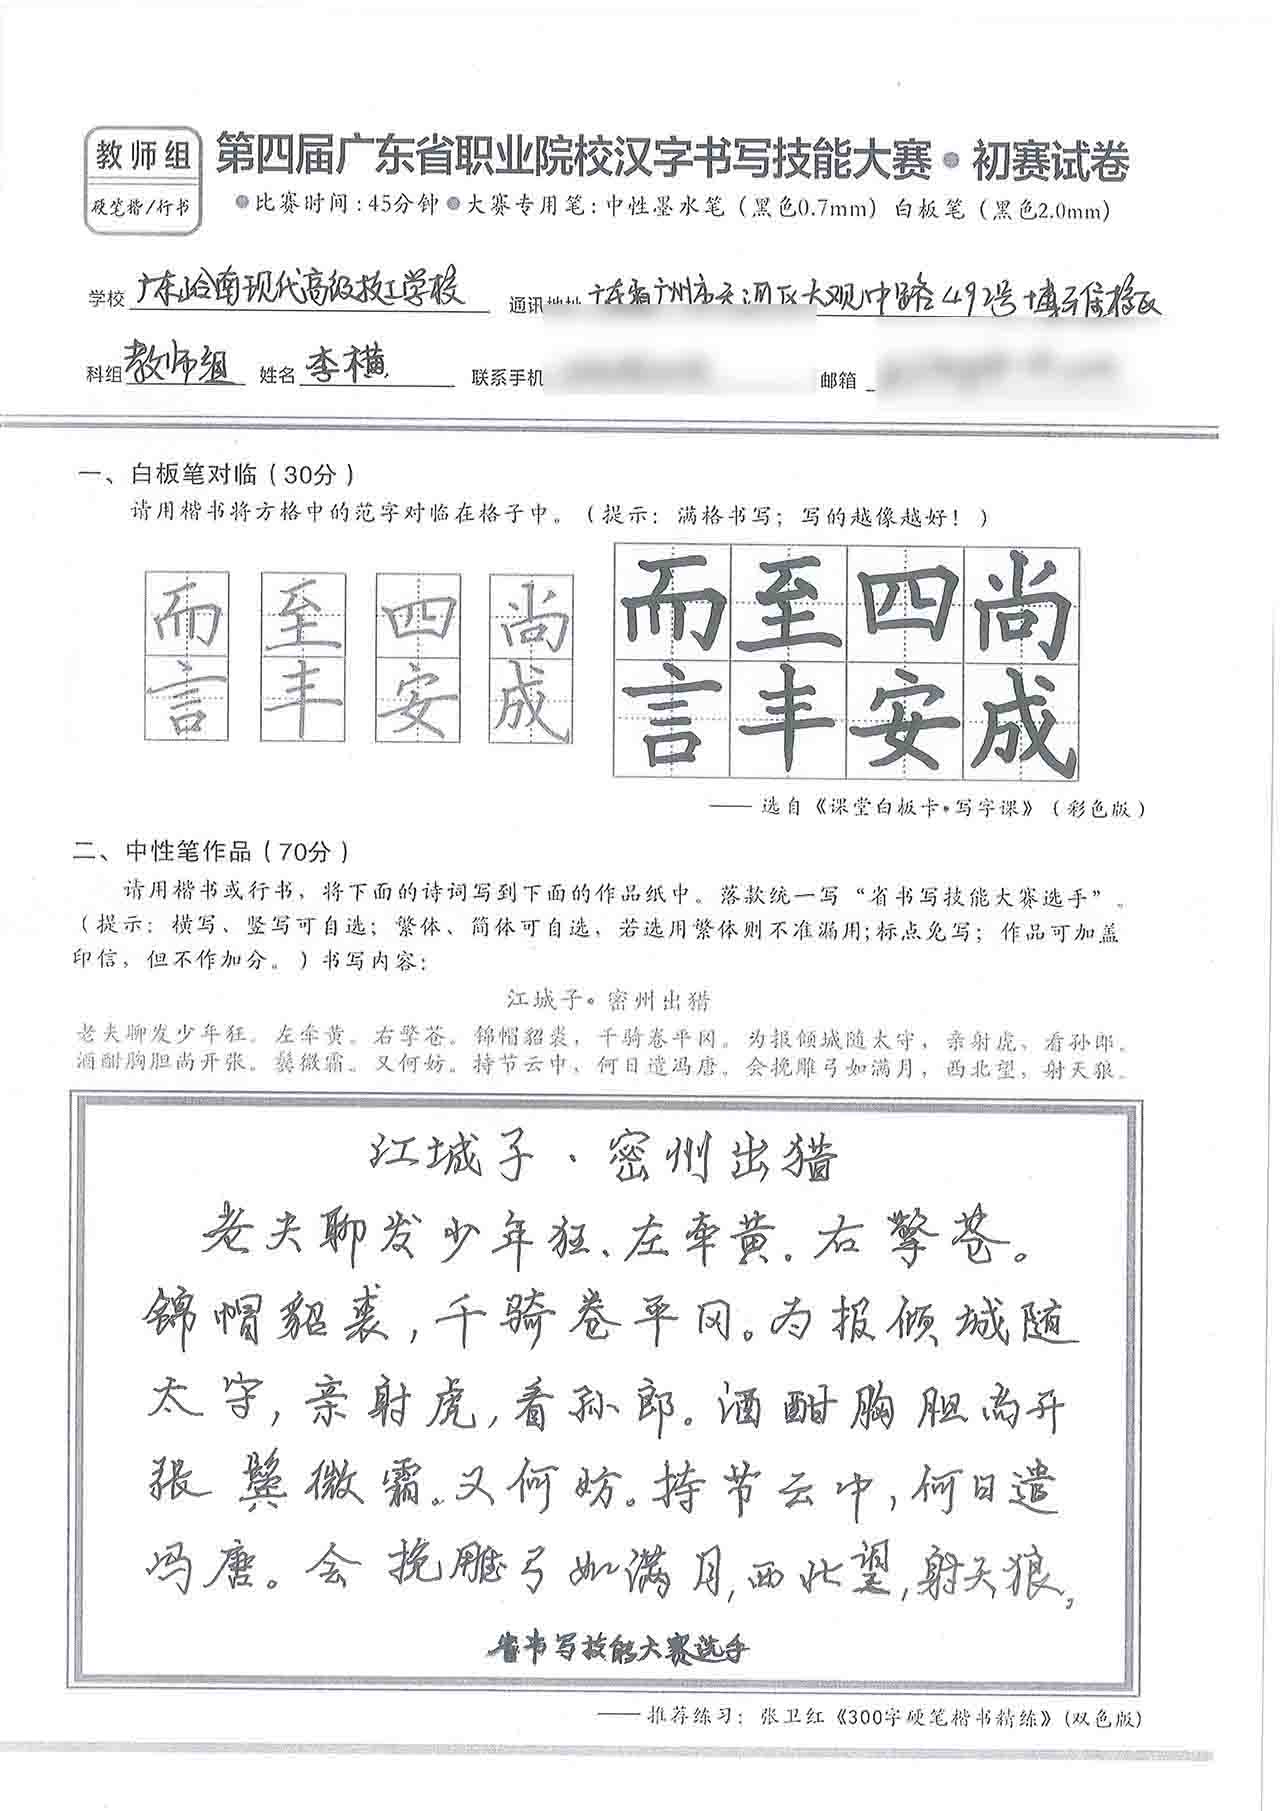 教师组
硬笔楷/行书
第四届广东省职业院校汉字书写技能大赛•初赛试卷
•比赛时间:45分钟•大赛专用笔:中性墨水笔（黑色0.7mm）白板笔（黑色2.0mm）
学校 广东岭南现代高级技工学校 通讯地址 广东省广州市天河区大观中路492号博
科组 教师组 姓名 李横 联系手机 邮箱
一、白板笔对临（30分）
请用楷书将方格中的范字对临在格子中。（提示：满格书写；写的越像越好！）
而 至 四 尚 而 至 四 尚
言 丰 安 成 言 丰 安 成
—— 选自《课堂白板卡•写字课》（彩色版）
二、中性笔作品（70分）
请用楷书或行书，将下面的诗词写到下面的作品纸中。落款统一写“省书写技能大赛选手”。
（提示：横写、竖写可自选；繁体、简体可自选，若选用繁体则不准漏用;标点免写；作品可加盖
印信，但不作加分。）书写内容：
江城子•密州出猎
老夫聊发少年狂。左牵黄。右擎苍。锦帽貂裘，千骑卷平冈。为报倾城随太守，亲射虎，看孙郎。
酒酣胸胆尚开张。鬓微霜。又何妨。持节云中，何日遣冯唐。会挽雕弓如满月，西北望，射天狼。
江城子·密州出猎
老夫聊发少年狂、左牵黄.右擎苍。
锦帽貂裘,千骑卷平冈。为报倾城随
太守,亲射虎,看孙郎。酒酣胸胆尚开
张 鬓微霜。又何妨。持节云中,何日遣
冯唐。会挽雕弓如满月,西北望,射天狼。
省书写技能大赛选手
—— 推荐练习：张卫红《300字硬笔楷书精练》(双色版)